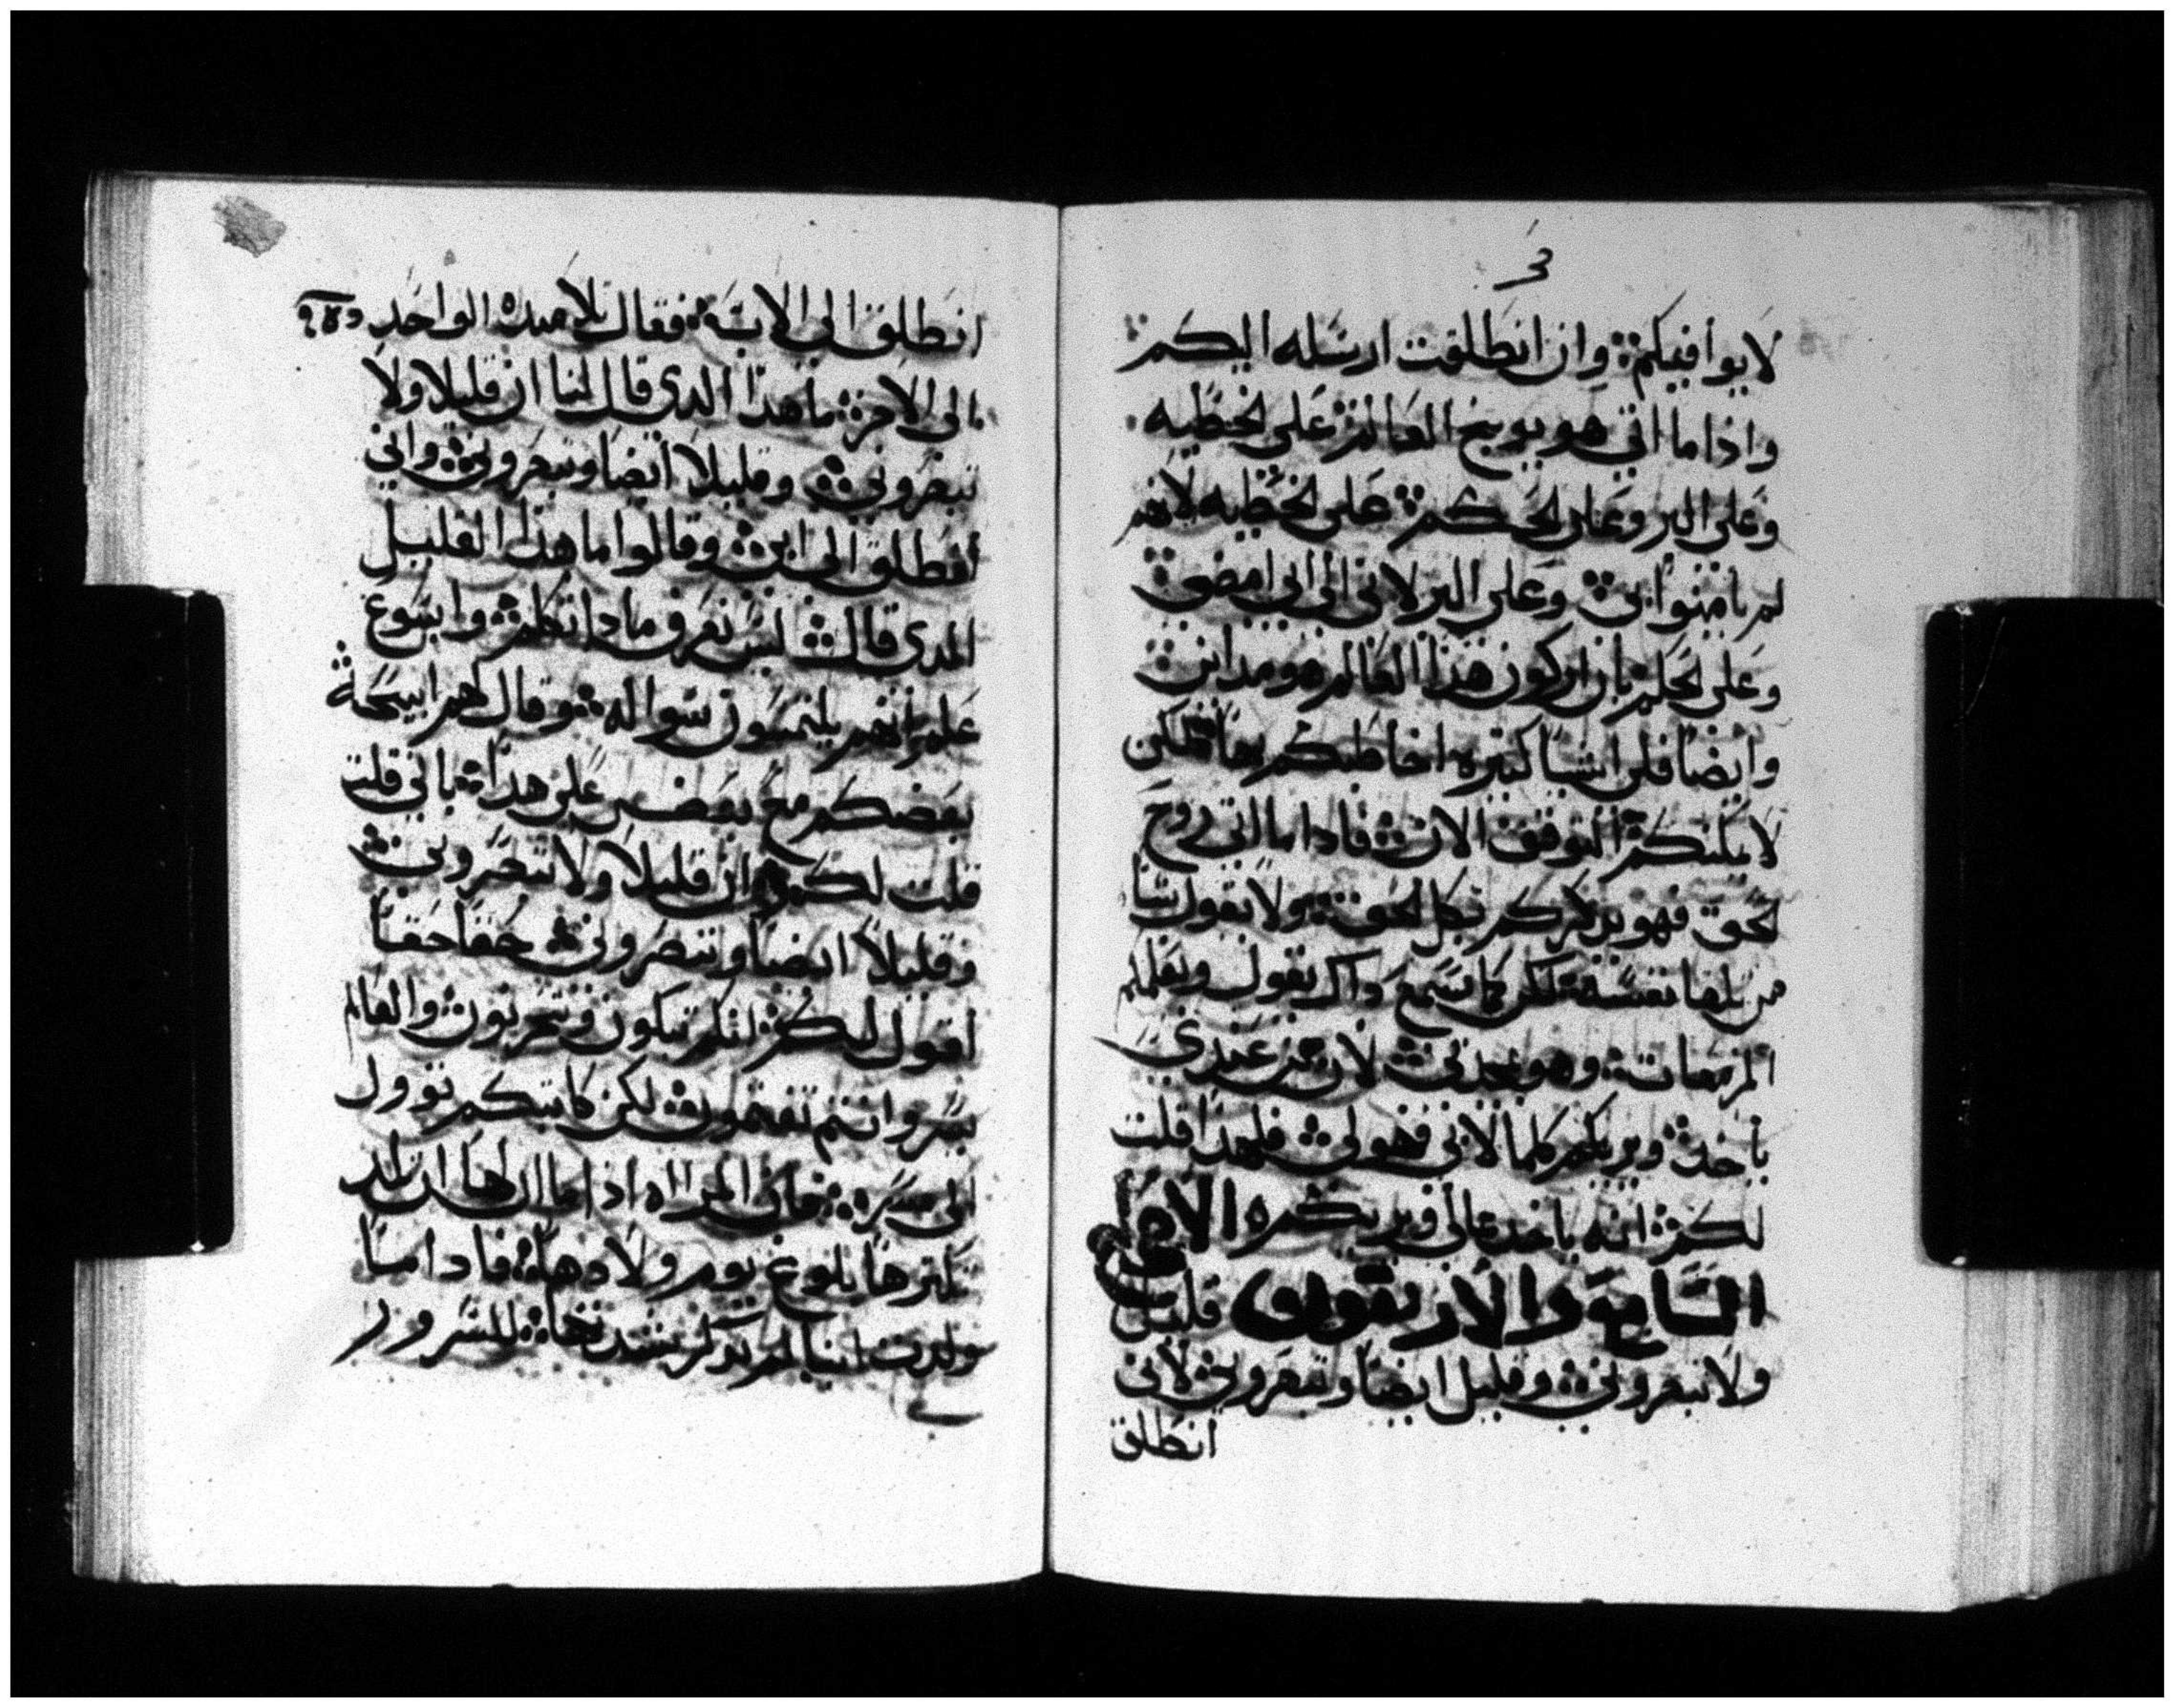 لايوافيكم وان انطلقت ارسله اليكم
واذا ما اتى هو يوبخ العالم على الخطيه
وعلى البر وعلى الحكم على الخطيه لانهم
لم يامنوا بي وعلى البر لاني الى ابي امضي
وعلى الحكم بان اركون هذا العالم هو مدان
وايضا فلى اشيا كتيره اخاطبكم بها لكن
لا يمكنكم التوقف الان فاذا ما اتى روح
الحق فهو يذكركم بكل الحق ولا يقول شيا
من تلقا نفسه لكن كما يسمع داك يقول ويعلمكم
المزمعات وهو يمجدني لان من عندي
ياخذ ويريكم كلما لابي فهو لي فلهدا قلت
لكم انه ياخد مما لي ويريكم الاصحاح
السابع والاربعون قليل
ولا تبصروني وقليل ايضا وتبصروني لاني
انطلق
انطلق الى الاب فقال تلاميده الواحد
الى الاخر ما هدا الدي قال لنا ان قليلا ولا
تبصروني وقليلا ايضا وتبصروني واني
انطلق الى ابي وقالوا ما هدا القليل
الدي قال ليس نعرف مادا تكلم وايسوع
علم انهم يلتمسون سواله وقال لهم ايبحث
بعضكم مع بعض على هدا باني قلت
قلت لكم ان قليلا ولا تبصروني
وقليلا ايضا وتبصروني حقا حقا
اقول لكم انكم تبكون وتحزنون والعالم
يسر وانتم تغتمون لكن كابتكم توول
الى مسره فان المراه اذا ما ان لها ان تلد
يحزنها بلوغ يوم ولادها فاداما
ولدت ابنا لم تدكر شدتها للسرور